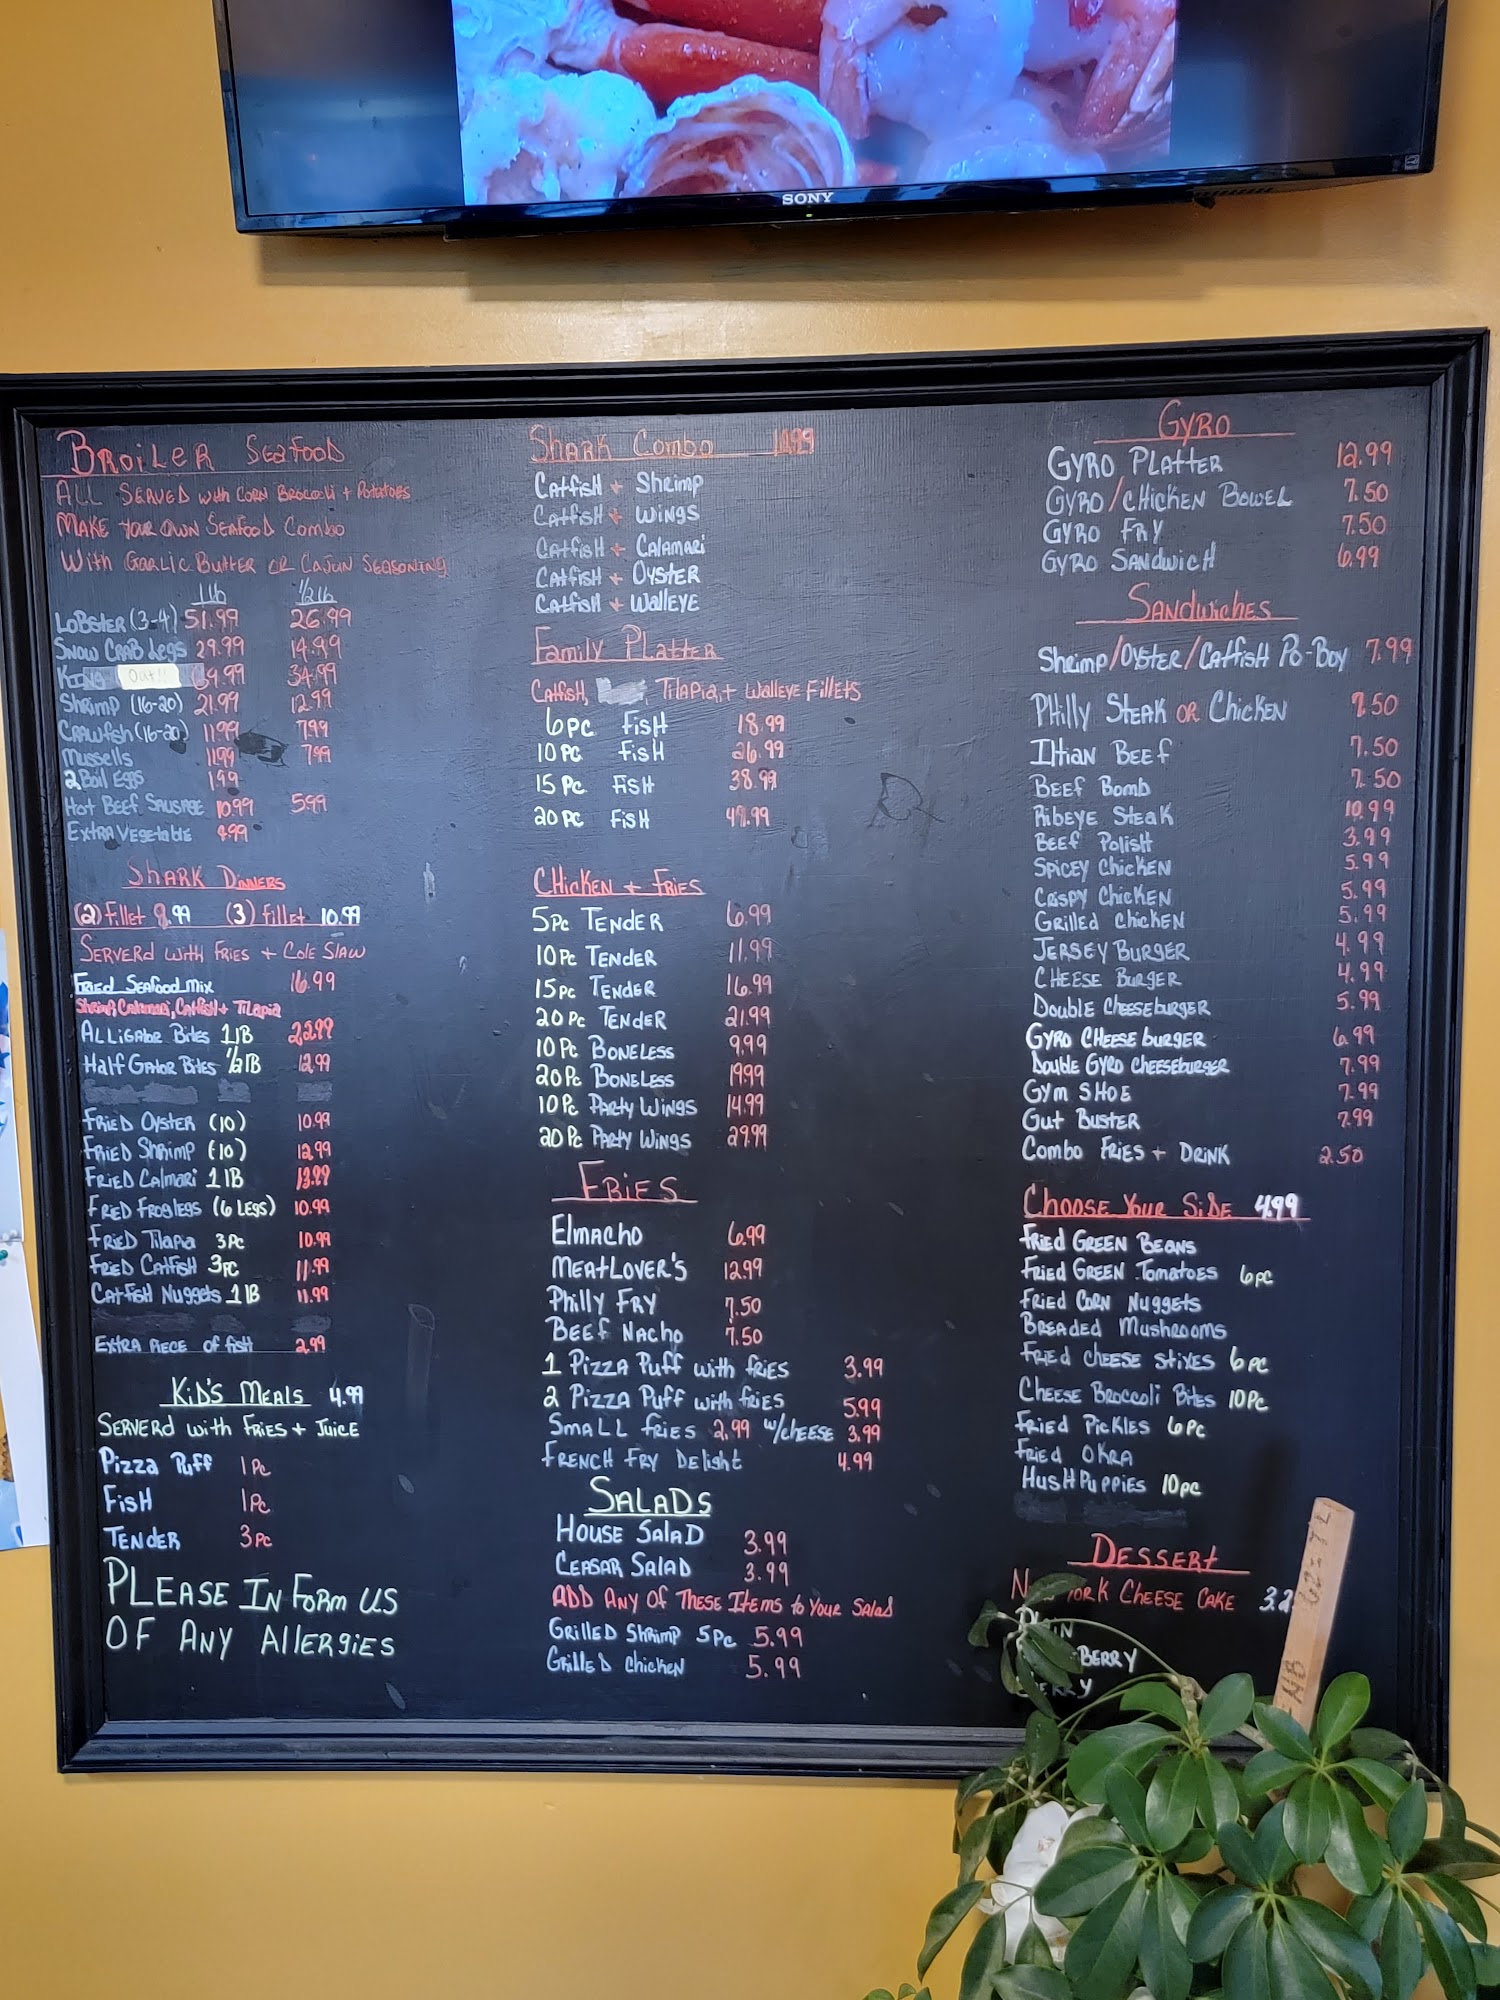 SONY
BROILER SEAFOOD
ALL SERVED with CORN BROCCOLI + POTATOES
MAKE YOUR OWN SEAFOOD COMBO
With GARLIC BUTTER OR CAJUN SEASONING
1 lb 1/2 lb
LOBSTER (3-4) 51.99 26.99
SNOW CRAB LEGS 29.99 14.99
KING Out!! 69.99 34.99
Shrimp (16-20) 21.99 12.99
CRAWFISH (16-20) 11.99 7.99
Mussells 11.99 7.99
2 Boil EGGS 1.99
Hot BEEF SAUSAGE 10.99 5.99
EXTRA VEGETABLE 4.99
SHARK DINNERS
(2) Fillet 9.99 (3) Fillet 10.99
SERVERD with FRIES + COLE SLAW
FRIED SEAFOOD MIX 16.99
Shrimp, Calamari, Catfish + Tilapia
ALLIGATOR BITES 1 lB 22.99
Half GATOR BITES 1/2 lB 12.99
FRIED OYSTER (10) 10.99
FRIED Shrimp (10) 12.99
FRIED CALMARI 1 lB 13.99
FRIED FROGLEGS (6 LEGS) 10.99
FRIED Tilapia 3 PC 10.99
FRIED CATFISH 3 PC 11.99
CATFISH NUGGETS 1 lB 11.99
EXTRA PIECE OF fisH 2.99
KiD'S MEALS 4.99
SERVERD with FRIES + JUICE
Pizza Puff 1 Pc
FisH 1 Pc
TENDER 3 Pc
PLEASE IN FORM US
OF ANY AllERGIES
Shark Combo 10.99
CATFISH + Shrimp
CATFISH + WINGS
CATFISH + CALAMARI
CATFISH + OYSTER
CATFISH + WALLEYE
Family PLATTER
CATFISH, TILAPIA, + WALLEYE FILLETS
6 PC FISH 18.99
10 PC FISH 26.99
15 PC FISH 38.99
20 PC FISH 49.99
CHICKEN + FRIES
5 Pc TENDER 6.99
10 Pc TENDER 11.99
15 Pc TENDER 16.99
20 Pc TENDER 21.99
10 Pc BONELESS 9.99
20 Pc BONELESS 19.99
10 Pc PARTY WINGS 14.99
20 Pc PARTY WINGS 29.99
FRIES
ELMACHO 6.99
MEATLOVER'S 12.99
Philly FRY 7.50
BEEF NACHO 7.50
1 Pizza Puff with fRiES 3.99
2 Pizza Puff with fRiES 5.99
SMALL fRiES 2.99 w/CHEESE 3.99
FRENCH FRY DELIGHT 4.99
SALADS
HOUSE SALAD 3.99
CEASAR SALAD 3.99
ADD ANY OF THESE ITEMS to YOUR SALAD
GRILLED SHRIMP 5 Pc 5.99
GRILLED CHICKEN 5.99
GYRO
GYRO PLATTER 12.99
GYRO/CHICKEN BOWEL 7.50
GYRO FRY 7.50
GYRO SANDWICH 6.99
SANDWICHES
Shrimp/OYSTER/CATFISH PO-BOY 7.99
PHILLY STEAK OR CHICKEN 7.50
ITIAN BEEF 7.50
BEEF BOMB 7.50
RIBEYE STEAK 10.99
BEEF POLISH 3.99
SPICEY CHICKEN 5.99
CRISPY CHICKEN 5.99
GRILLED CHICKEN 5.99
JERSEY BURGER 4.99
CHEESE BURGER 4.99
DOUBLE CHEESEBURGER 5.99
GYRO CHEESE BURGER 6.99
DOUBLE GYRO CHEESEBURGER 7.99
GYM SHOE 7.99
GUT BUSTER 7.99
COMBO FRIES + DRINK 2.50
CHOOSE YOUR SIDE 4.99
FRIED GREEN BEANS
FRIED GREEN TOMATOES 6 PC
FRIED CORN NUGGETS
BREADED MUSHROOMS
FRIED CHEESE STIXES 6 PC
CHEESE BROCCOLI BITES 10 PC
FRIED PICKLES 6 PC
FRIED OKRA
HUSH PUPPIES 10 PC
DESSERT
YORK CHEESE CAKE
BERRY